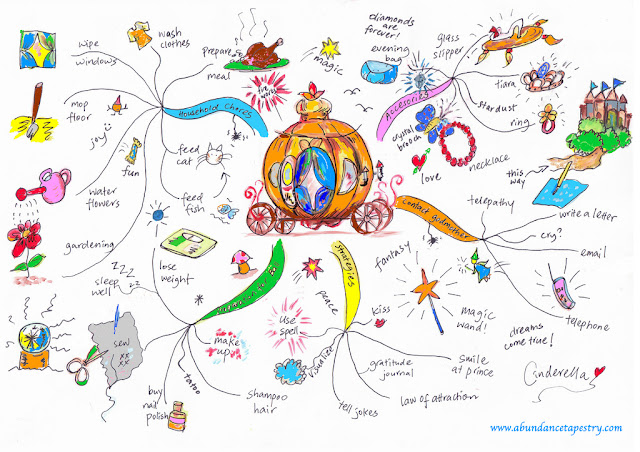 wipe
windows
wash
clothes
prepare
meal
mop
floor
joy
fun
feed
cat
feed
fish
water
flowers
gardening
Household Chores
magic
diamonds
are
forever!
evening
bag
glass
slipper
tiara
stardust
ring
necklace
crystal
brooch
love
Accessories
this
way
Contact Godmother
telepathy
write a letter
cry?
email
telephone
magic
wand!
dreams
come true!
fantasy
Strategies
peace
kiss
use
spell
visualize
smile
at prince
gratitude
journal
law of attraction
tell jokes
lose
weight
zzz
zz
sleep
well
sew
xx
xx
make
up
tatoo
shampoo
hair
buy
nail
polish
Cinderella
www.abundancetapestry.com